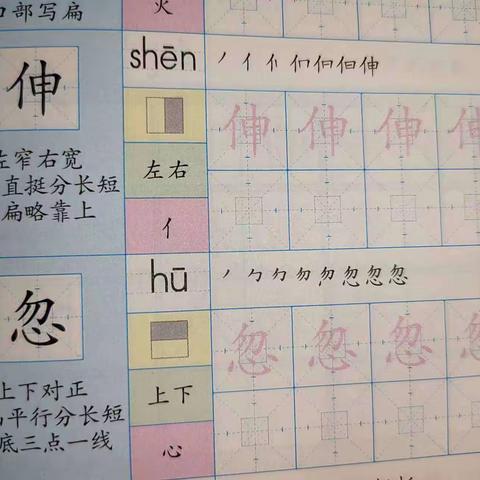 口部写扁
火
伸
shēn
丿 亻 亻 们 但 伸 伸
伸 伸 伸 伸
左右
亻
左窄右宽
直挺分长短
扁略靠上
忽
hū
丿 勹 勹 勿 勿 忽 忽 忽
忽 忽 忽 忽
上下
心
上下对正
平行分长短
底三点一线